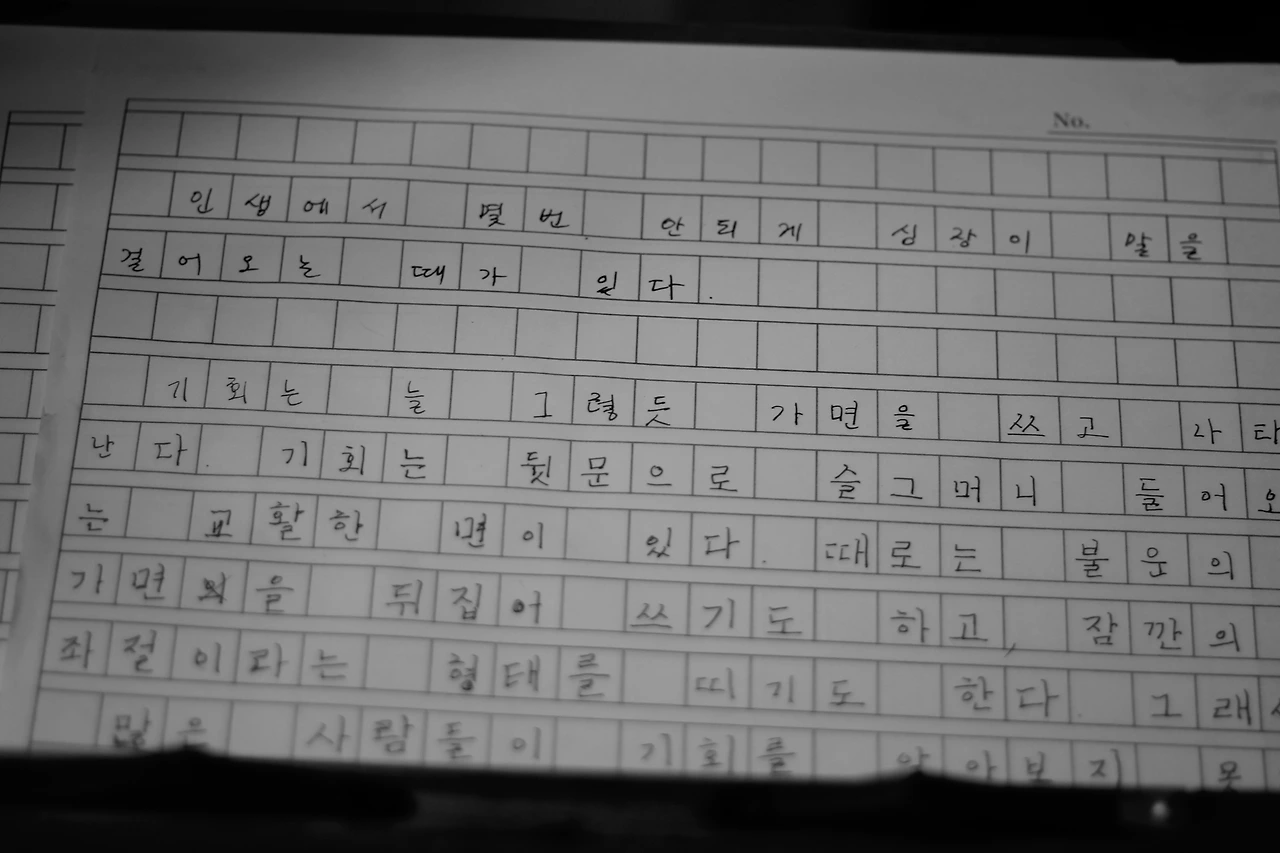 No.
인생에서 몇번 안되게 심장이 말을
걸어오는 때가 있다.
기회는 늘 그렇듯 가면을 쓰고 나타
난다. 기회는 뒷문으로 슬그머니 들어오
는 교활한 면이 있다. 때로는 불운의
가면을 뒤집어 쓰기도 하고, 잠깐의
좌절이라는 형태를 띠기도 한다. 그래서
많은 사람들이 기회를 알아보지 못